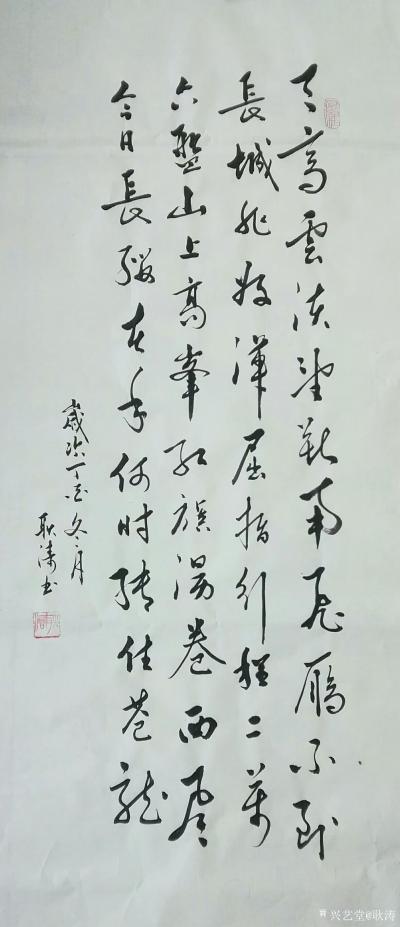 天高雲淡望斷南飛雁不到
長城非好漢屈指行程二萬
六盤山上高峯紅旗漫卷西風
今日長纓在手何時縛住蒼龍
歲次丁酉冬月
耿濤書
兴艺堂@耿涛